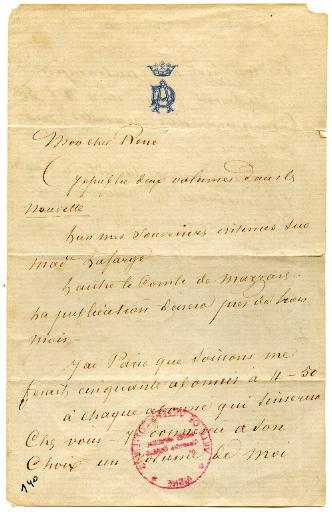 Mon cher René
Je publie deux volumes dans la
Nouvelle
L'un mes Souvenirs intimes sur
mad. Lafarge
L'autre le Comte de Mazzara
La publication durera près de trois
mois.
J'ai Parié que Soissons me
ferait cinquante abonnés à 4-50
à chaque abonné qui s'inscrira
Chez vous Je donnerai a son
Choix un volume de moi
140